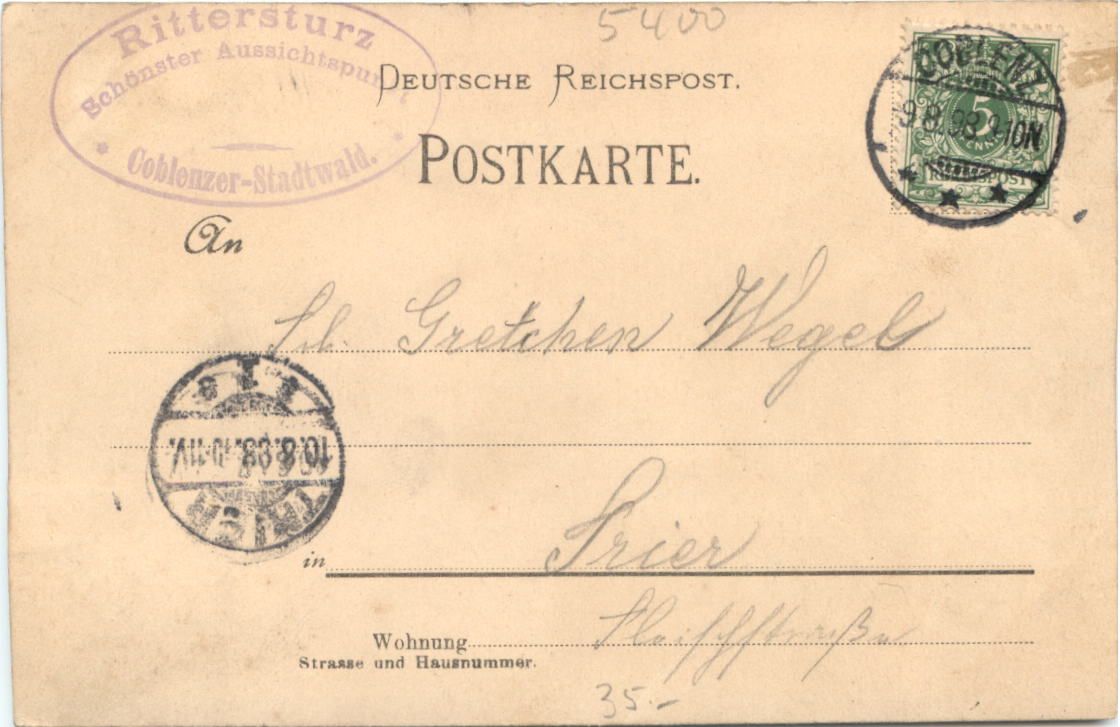 5400
Rittersturz
Schönster Aussichtspunkt
Coblenzer-Stadtwald.
DEUTSCHE REICHSPOST.
POSTKARTE.
COBLENZ
9.8.98.9-10N
5
PFENNIG
REICHSPOST
An
Frl. Gretchen Wegel
TRIER
10.8.98.10-11V.
in Trier
Wohnung Fleischstraße
Strasse und Hausnummer.
35.-